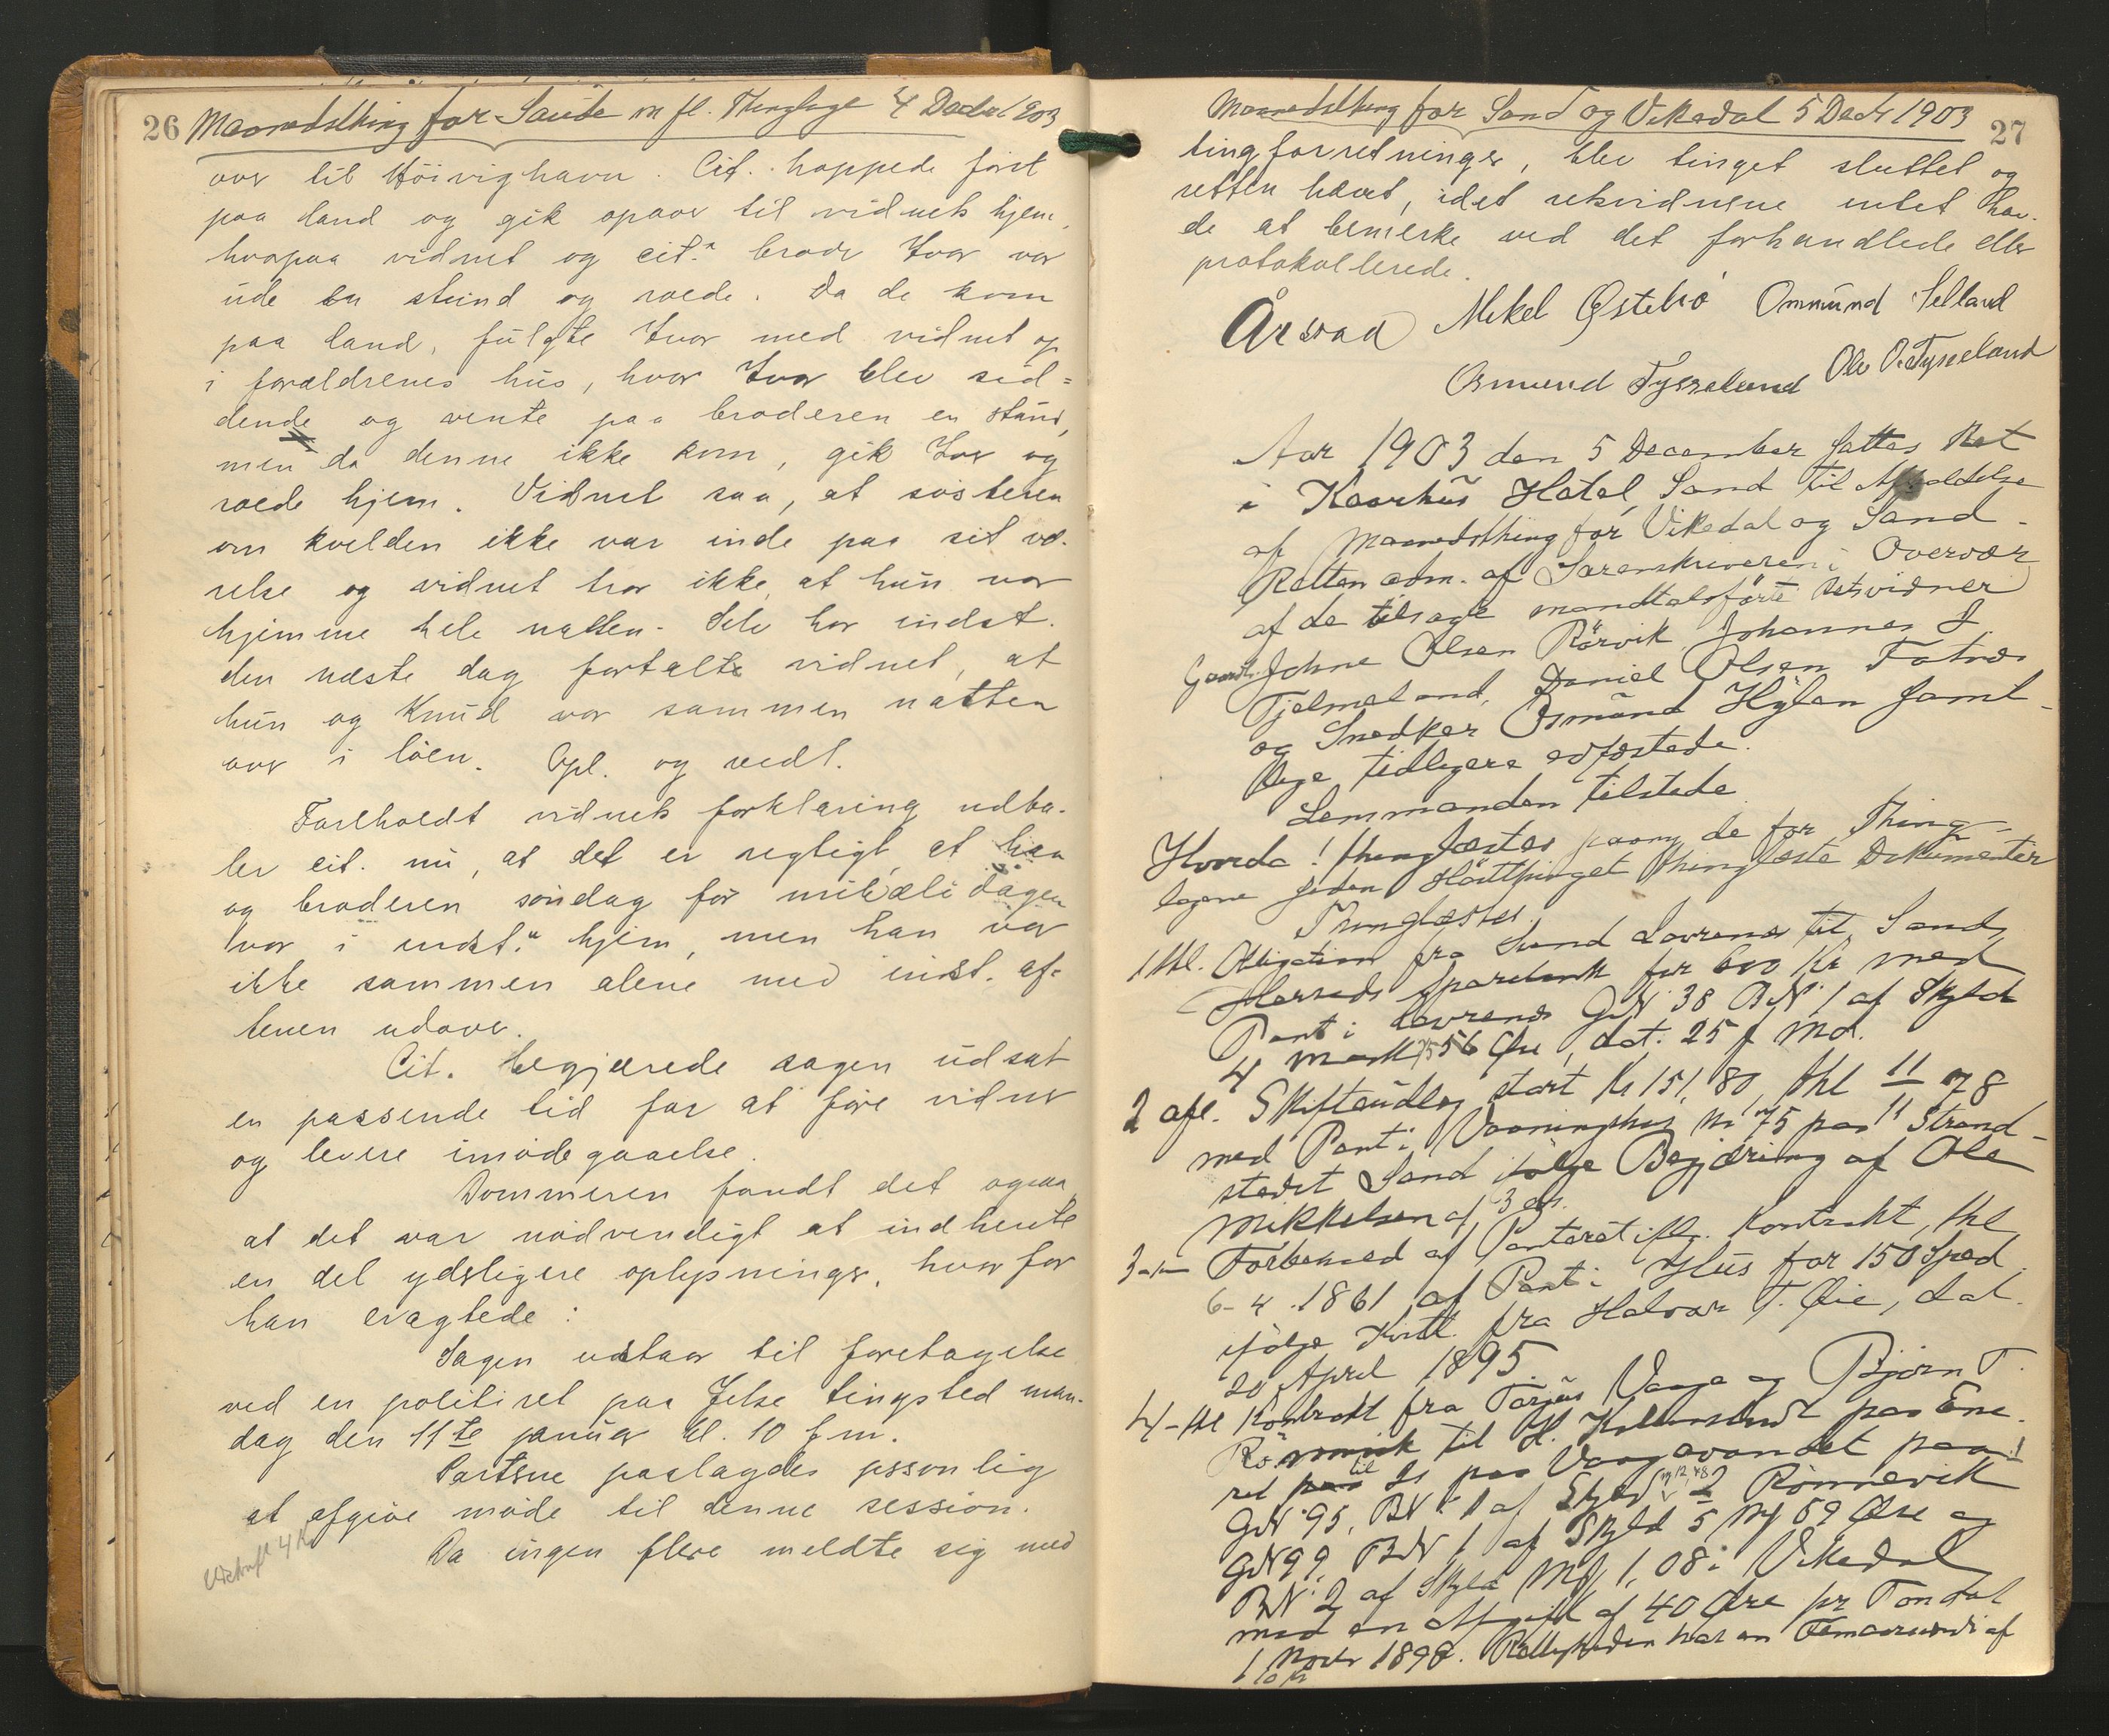 26
Maanedsthing for Saude m fl. Thinglage 4 Decbr 1903
over til Höivighavn. Cit. hoppede först
paa land og gik opover til vidnets hjem,
hvorpaa vidnet og cit.s broder Ivar var
ude en stund og roede. Da de kom
paa land, fulgte Ivar med vidnet op
i forældrenes hus, hvor Ivar blev sid=
dende og vente paa broderen en stund,
men da denne ikke kom, gik Ivar og
roede hjem. Vidnet saa, at sösteren
om kvelden ikke var inde paa sit væ-
relse og vidnet tror ikke, at hun var
hjemme hele natten. Selv har indst.
den næste dag fortalte vidnet, at
hun og Knud var sammen natten
over i löen. Opl. og vedt.
Foreholdt vidnets forklaring udta-
ler cit. nu, at det er rigtigt, at han
og broderen söndag för mikæli dagen
var i indst.s hjem, men han var
ikke sammen alene med indst. af-
tenen udover.
Cit. begjærede sagen udsat
en passende tid for at före vidner
og levere imödegaaelse.
Dommeren fandt det ogsaa
at det var nödvendigt at indhente
en del yderligere oplysninger, hvorfor
han eragtede:
Sagen udstaar til foretagelse
ved en politiret paa Jelse tingsted man-
dag den 11te januar kl. 10 f.m.
Parterne paalagdes personlig
at afgive möde til denne session.
Da ingen flere meldte sig med
27
Maanedsthing for Sand og Vikedal 5 Decbr 1903
tingforretninger, blev tinget sluttet og
retten hævet, idet retsvidnene intet hav-
de at bemerke ved det forhandlede eller
protokollerede.
Årstad Mikel Østebö Ommund Selland
Osmund Tysseland Ole O. Tysseland
Aar 1903 den 5 December sattes Ret
i Kaarhus Hotel, Sand til Afholdelse
af Maanedsthing for Vikedal og Sand.
Retten adm. af Sorenskriveren i Overvær
af de tilsagte mandtalsförte Retsvidner
Gaardb. Johne Olsen Rörvik Johannes J.
Fjelmeland, Daniel Olsen Fatnes
og Snedker Osmund Hylen samt-
lige tidligere edfæstede.
Lensmanden tilstede
Hvorda! thinglæstes paany de for Thing-
lagene siden Höstthinget thinglæste Dokumenter
Thinglæstes.
1 thl. Obligation fra Svend Lovrenes til Sands
Herreds Sparebank for 600 Kr med
Pant i Lovrenes GN 38 BN 1 af Skyld
4 Mark 56 Øre, dat. 25 f Md.
2 afl. Skifteudlæg stort Kr 151,80, thl 11/11 78
med Pant i Vaaningshus No 75 paa Strand-
stedet Sand ifölge Begjæring af Ole
Mikkelsen af 3 ds.
3 - Forbehold af Panteret ifl. Kontrakt, thl
6-4.1861 af Pant i Hus for 150 Spd.
ifölge Kvitt. fra Halvor T. Øie, dat.
20 April 1895.
4 - thl Kontrakt fra Torjus Vaage og Björn T.
til H. paa Ene-
ret til Is paa Vaagevandet paa
GN 95, BN 1 af Skyld 2 Rönnevik
GN 99, BN 1 af Skyld 5 Mk 59 Øre og
BN 2 af Skyld Mk 1,08 i Vikedal
med en Afgift af 40 Øre pr Ton dat
1 Novbr 1898. Rettigheden har en Femaarsværdi af
10 Kr